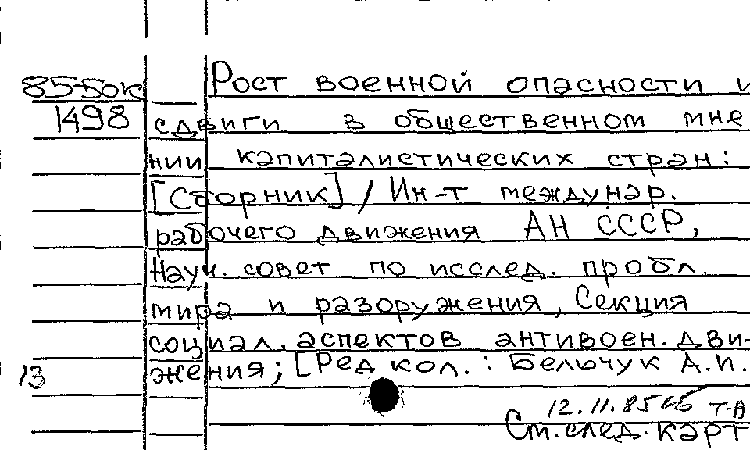 85-Бок
Рост военной опасности и
1498
сдвиги в общественном мне
нии капиталистических стран:
[Сборник] / Ин-т междунар.
рабочего движения АН СССР,
Науч. совет по исслед. пробл.
мира и разоружения, Секция
социал. аспектов антивоен. дви-
жения; [Редкол.: Бельчук А.И.
13
12.11.85
Т-А
См. след. карт